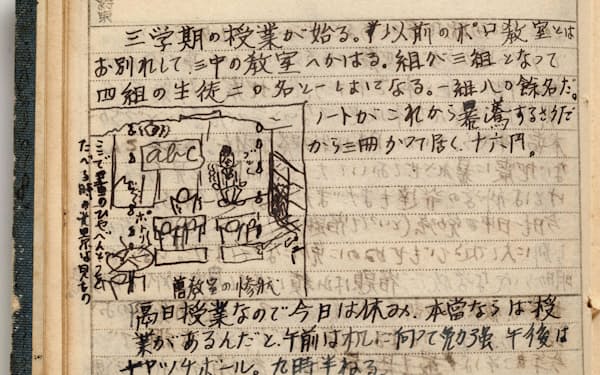 三学期の授業が始る。以前のボロ教室とは
お別れして三中の教室へかはる。組が三組となって
四組の生徒二〇名と一しょになる。一組八〇余名だ。
ノートがこれから暴騰するさうだ
から三冊かって居く、十六円。
abc
ポトリ
ここで昼のひるべんとうを
たべる時の光景は見もの
旧教室の惨状
隔日授業なので今日は休み、本当ならば授
業があるんだと、午前は机に向って勉強、午後は
キャッチボール。九時半ねる。